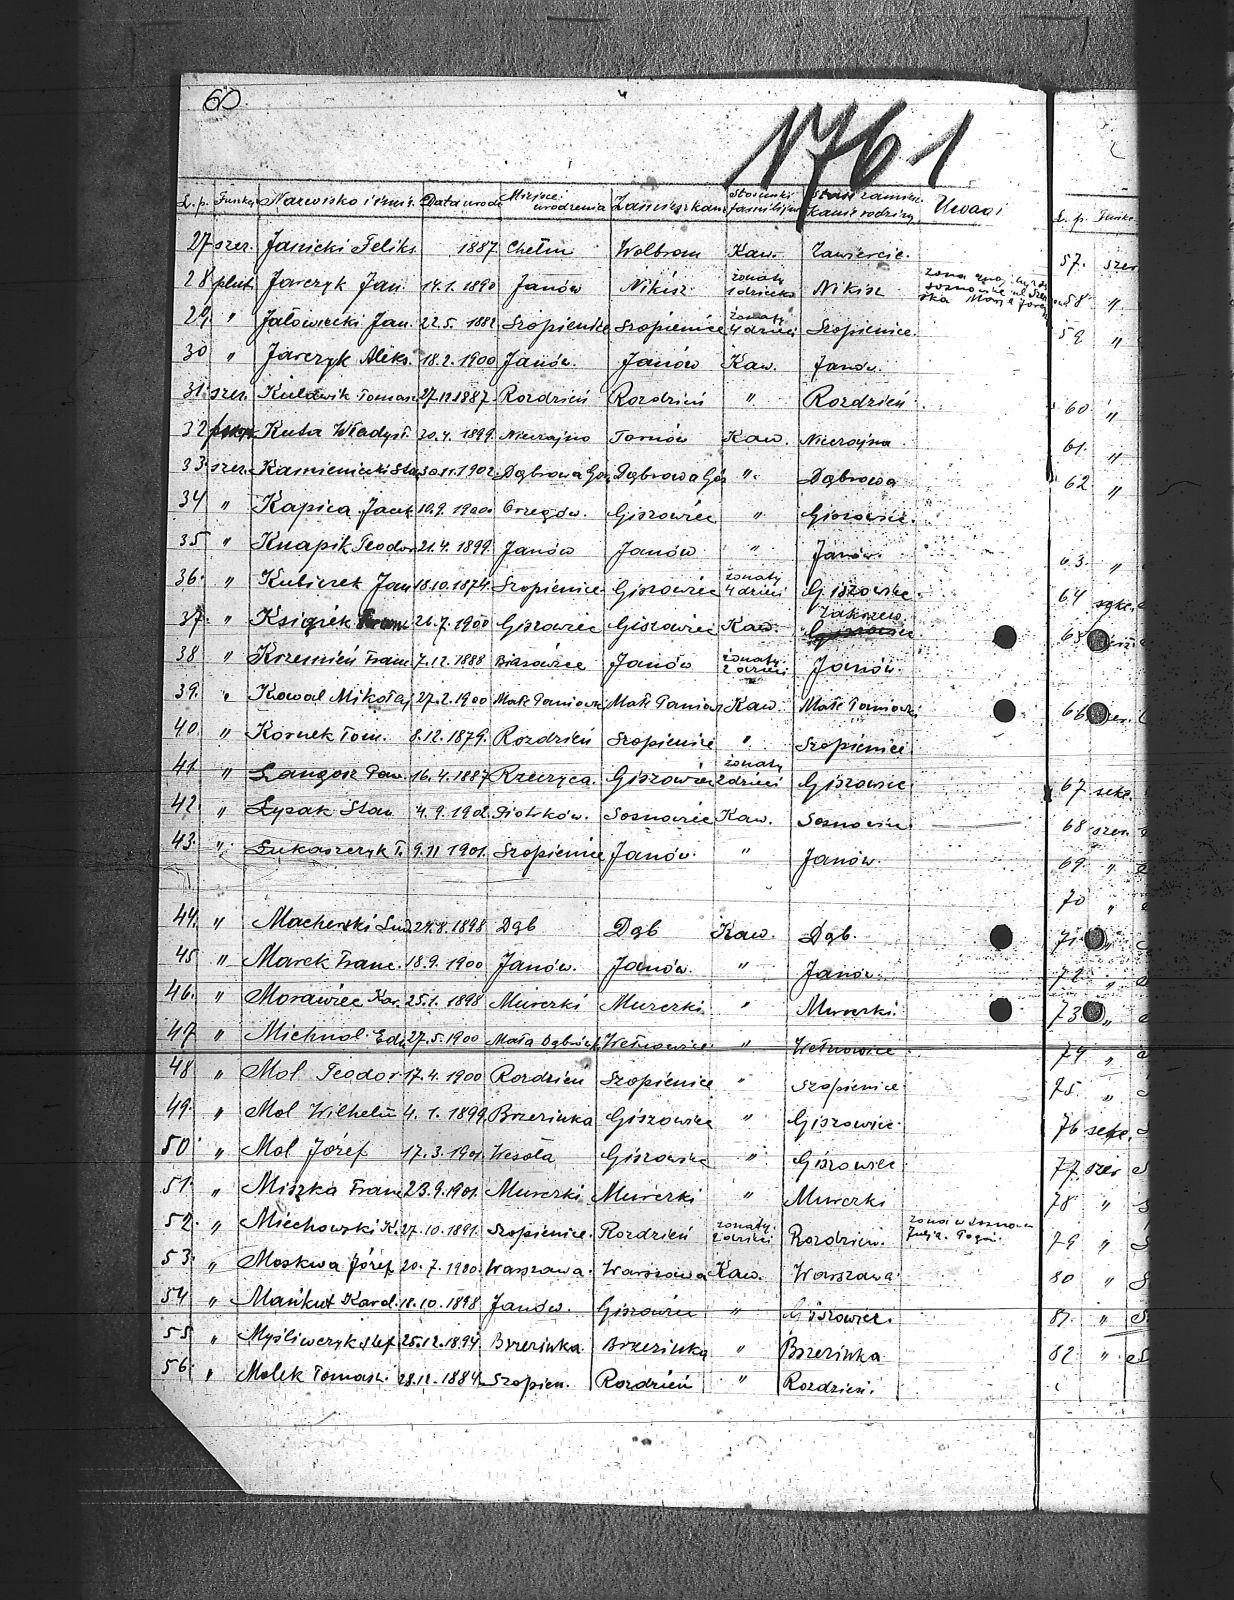 60
1761
L.p. Funkcj. Nazwisko i imię. Data urodz. Miejsce urodzenia Zamieszkan. Stosunki familijne Stan zamiesz. kanie rodziny Uwagi L.p. Funkc.
27 szer. Janicki Feliks 1887 Chełm Wolbrom Kaw. Zawiercie.
28 plut. Jarczyk Jan 14.1.1890 Janów Nikisz żonaty 1 dziecko Nikisz żona
29. " Jałowiecki Jan. 22.5.1882 Szopienice Szopienice żonaty 4 dzieci Szopienice.
30 " Jarczyk Aleks. 18.2.1900 Janów. Janów Kaw. Janów.
31. szer. Kuldwik Tomasz 27.12.1887. Rozdzień Rozdzień " Rozdzień
32 Kuta Władysł. 20.4.1899. Nieznajno Tornów Kaw. Nieznajna
33. szer. Kamieniecki Sta. 30.11.1902. Dąbrowa Gór. Dąbrowa Gór. " Dąbrowa
34 " Kapica Jacek 10.9.1900 Orzegów. Giszowiec " Giszowiec.
35 " Knapik Teodor 21.4.1899. Janów Janów " Janów.
36. " Kubiczek Jan 18.10.1874. Szopienice Giszowiec żonaty 4 dzieci Giszowiec
37. " Książek Franc 26.7.1900 Giszowiec Giszowiec Kaw. Zakrzew
38 " Krzemień Franc 7.12.1888 Biasowice Janów żonaty 2 dzieci Janów.
39. " Kowal Mikołaj 27.2.1900 Małe Paniowy Małe Paniow Kaw. Małe Paniowki
40. " Kornek Tom. 8.12.1879. Rozdzień Szopienice " Szopienice
41 " Langosz Paw. 16.4.1887 Rzeczyca. Giszowiec żonaty 2 dzieci Giszowiec
42. " Łysak Stan 4.9.1902. Piotrków. Sosnowiec Kaw. Sosnowiec
43. " Łukaszczyk T. 9.11.1901. Szopienice Janów. " Janów.
44. " Macherski Lud. 24.8.1898 Dąb Dąb Kaw. Dąb.
45 " Marek Franc. 18.9.1900 Janów. Janów. " Janów.
46. " Morawiec Kar. 25.1.1898 Murcki Murcki " Murcki
47 " Michnol. Edu. 27.5.1900 Mała Dąbrówk. Wełnowiec " Wełnowiec
48 " Mol Teodor 17.4.1900 Rozdzień Szopienice " Szopienice
49. " Mol Wilhelm 4.1.1899. Brzezinka Giszowiec " Giszowiec.
50. " Mol Józef 17.3.1901. Wesoła Giszowiec " Giszowiec
51. " Miszka Franc 23.9.1901. Murcki Murcki " Murcki
52. " Miechowski K. 27.10.1891. Szopienice. Rozdzień żonaty. 2 dzieci Rozdzień. żona w Sosnow.
53. " Moskwa Józef 20.7.1900 Warszawa. Warszawa Kaw. Warszawa
54 " Mańkut Karol. 18.10.1898 Janów. Giszowiec " Giszowiec.
55 " Myśliwczyk Stef. 25.12.1894. Brzezinka. Brzezinka " Brzezinka
56. " Molek Tomasz. 28.12.1884 Szopien. Rozdzień " Rozdzień.
57. szer
58 "
59 "
60 "
61. "
62 "
63. "
64
65
66
67 sekc.
68 szer.
69. "
70 "
71. "
72 "
73. "
74 "
75. "
76 sekc.
77. szer
78 "
79 "
80 "
81. "
82 "